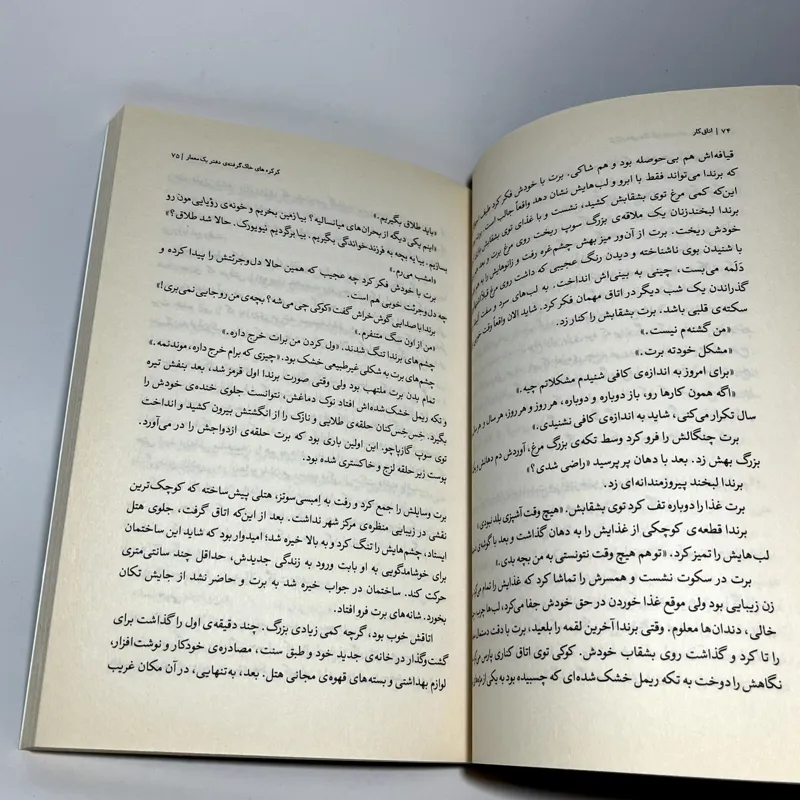 ۷۴ | اتاق کار
قیافه‌اش هم بی‌حوصله بود و هم شاکی. برت با خودش فکر کرد طیف
که برندا می‌تواند فقط با ابرو و لب‌هایش نشان دهد واقعاً جالب است.
این‌که کمی مرغ توی بشقابش کشید، نشست و با غذای توی بشقابش
برندا لبخندزنان یک ملاقه‌ی بزرگ سوپ ریخت روی مرغ برت و بعد
خودش ریخت. برت از آن‌ور میز بهش چشم‌غره رفت و زانوهایش را
با شنیدن بوی ناشناخته و دیدن رنگ عجیبی که داشت روی مرغ
دَلَمه می‌بست، چینی به بینی‌اش انداخت. به لب‌های سرد و سفت
گذراندن یک شب دیگر در اتاق مهمان فکر کرد. شاید الان واقعاً وقت
سکته‌ی قلبی باشد، برت بشقابش را کنار زد.
«من گشنه‌م نیست.»
«مشکل خودته برت.»
«برای امروز به اندازه‌ی کافی شنیدم مشکلاتم چیه.»
«اگه همون کارها رو، باز دوباره و دوباره، هر روز و هر روز، هر سال و هر
سال تکرار می‌کنی، شاید به اندازه‌ی کافی نشنیدی.»
برت چنگالش را فرو کرد وسط تکه‌ی بزرگ مرغ، آوردش دم دهانش و
بزرگ بهش زد. بعد با دهان پر پرسید «راضی شدی؟»
برندا لبخند پیروزمندانه ای زد.
برت غذا را دوباره تف کرد توی بشقابش. «هیچ وقت آشپزی بلد نبودی.»
برندا قطعه‌ی کوچکی از غذایش را به دهان گذاشت و بعد با گوشه‌ی
لب‌هایش را تمیز کرد. «تو هم هیچ وقت نتونستی به من بچه بدی.»
برت در سکوت نشست و همسرش را تماشا کرد که غذایش را تمام
زن زیبایی بود ولی موقع غذا خوردن در حق خودش جفا می‌کرد، لب‌ها
خالی، دندان‌ها معلوم. وقتی برندا آخرین لقمه را بلعید، برت با دقت
را تا کرد و گذاشت روی بشقاب خودش. کوکی توی اتاق کناری پارس
نگاهش را دوخت به تکه ریمل خشک‌شده‌ای که چسبیده بود به یکی از
کرکره های خاک گرفته‌ی دفتر یک معمار | ۷۵
«باید طلاق بگیریم.»
«اینم یکی دیگه از بحران‌های میانسالیه؟ بیا زمین بخریم و خونه‌ی رؤیایی‌مون رو
بسازیم. بیا یه بچه به فرزندخواندگی بگیریم. بیا برگردیم نیویورک. حالا شد طلاق؟»
«امشب می‌رم.»
برت با خودش فکر کرد چه عجیب که همین حالا دل‌وجرئتش را پیدا کرده و
چه دل‌وجرئت خوبی هم است.
برندا با صدایی گوش‌خراش گفت «کوکی چی می‌شه؟ بچه‌ی من رو جایی نمی‌بری!»
«من از اون سگ متنفرم.»
چشم‌های برندا تنگ شدند. «ول کردن من برات خرج داره.»
چشم‌های برت به شکلی غیرطبیعی خشک بود. «چیزی که برام خرج داره، موندنمه.»
تمام بدن برت ملتهب بود ولی وقتی صورت برندا اول قرمز شد، بعد بنفش تیره
و تکه ریمل خشک‌شده‌اش افتاد نوک دماغش، نتوانست جلوی خنده‌ی خودش را
بگیرد. خِس‌خِس‌کنان حلقه‌ی طلایی و نازک را از انگشتش بیرون کشید و انداخت
توی سوپ گازپاچو. این اولین باری بود که برت حلقه‌ی ازدواجش را در می‌آورد.
پوست زیر حلقه لزج و خاکستری شده بود.
برت وسایلش را جمع کرد و رفت به اِمبسی‌سوئتز، هتلی پیش‌ساخته که کوچک‌ترین
نقش در زیبایی منظره‌ی مرکز شهر نداشت. بعد از این‌که اتاق گرفت، جلوی هتل
ایستاد، چشم‌هایش را تنگ کرد و به بالا خیره شد؛ امیدوار بود که شاید این ساختمان
برای خوشامدگویی به او بابت ورود به زندگی جدیدش، حداقل چند سانتی‌متری
حرکت کند. ساختمان در جواب خیره شد به برت و حاضر نشد از جایش تکان
بخورد. شانه‌های برت فرو افتاد.
اتاقش خوب بود، گرچه کمی زیادی بزرگ. چند دقیقه‌ی اول را گذاشت برای
گشت‌وگذار در خانه‌ی جدید خود و طبق سنت، مصادره‌ی خودکار و نوشت‌افزار،
لوازم بهداشتی و بسته‌های قهوه‌ی مجانی هتل. بعد، به‌تنهایی، در آن مکان غریب